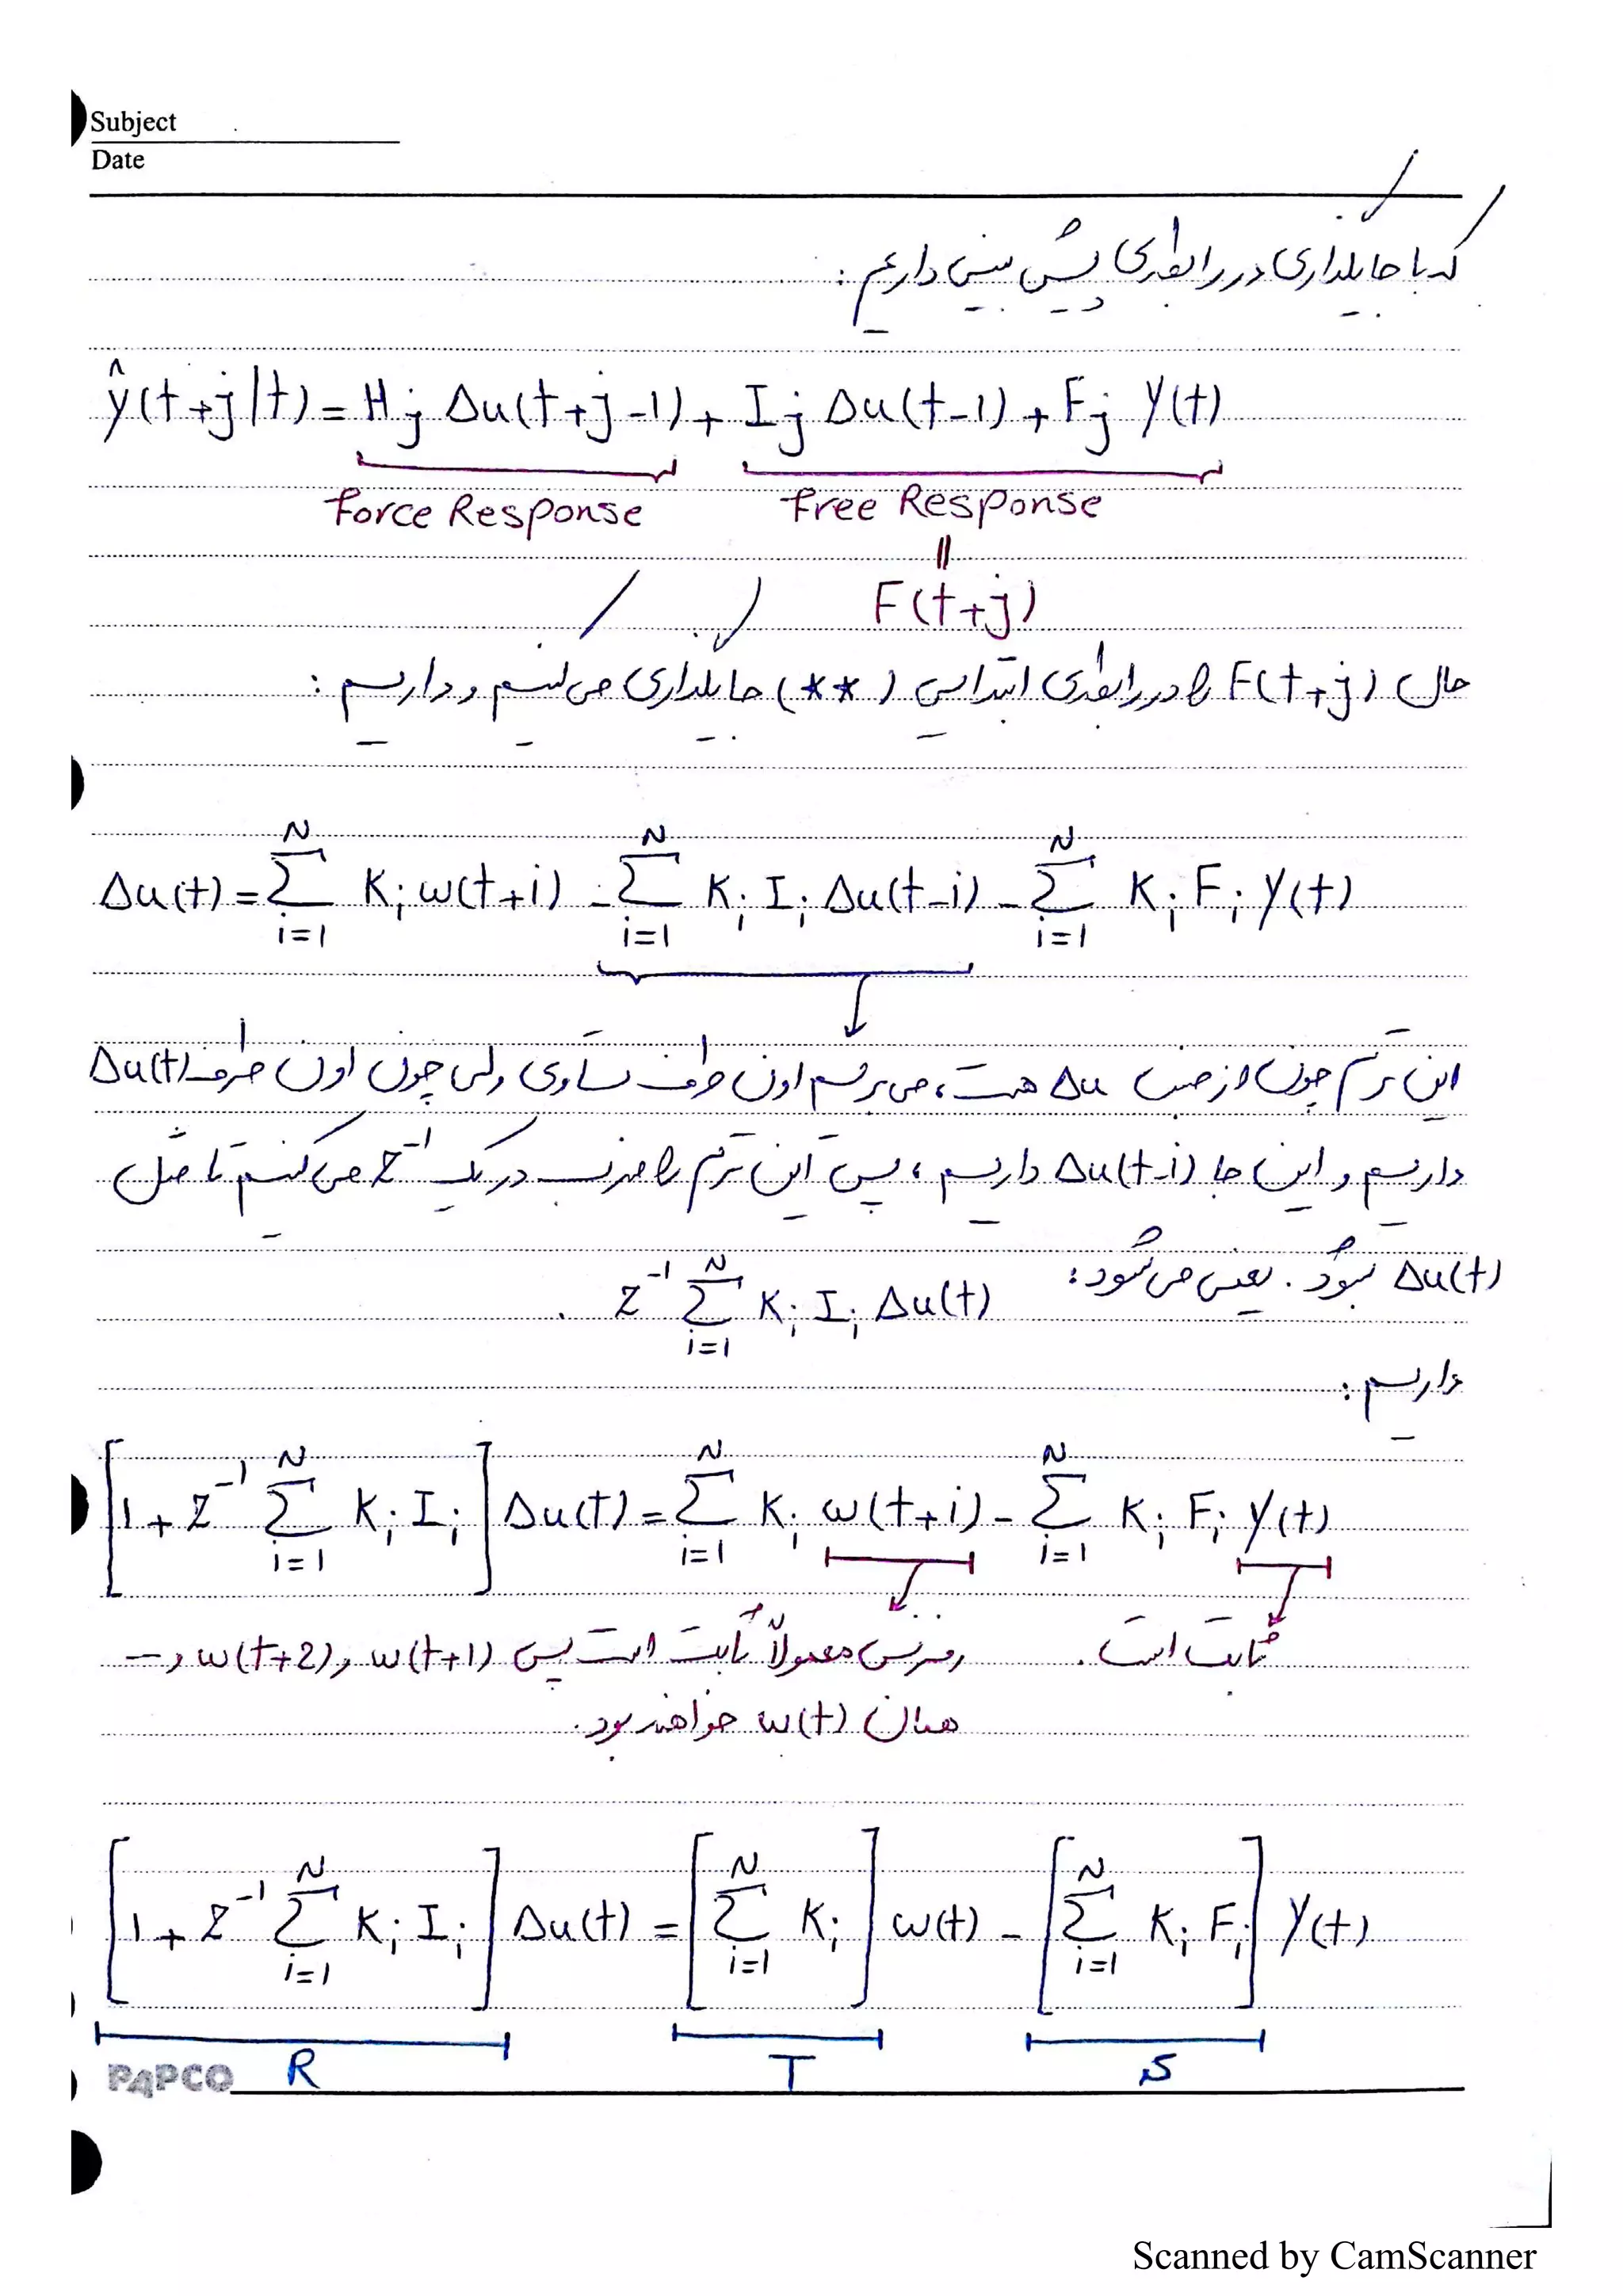 Subject
Date
که با جایگذاری در رابطه‌ی پیش بینی داریم :
ŷ(t+j|t) = Hj Δu(t+j-1) + Ij Δu(t-1) + Fj y(t)
Force Response Free Response
=
F(t+j)
حال F(t+j) را در رابطه‌ی ابتدایی (**) جایگذاری می کنیم و داریم :
Δu(t) = Σ_{i=1}^{N} Ki w(t+i) - Σ_{i=1}^{N} Ki Ii Δu(t-i) - Σ_{i=1}^{N} Ki Fi y(t)
این ترم چون از جنس Δu هست، می بریم اون طرف تساوی ولی چون اون طرف Δu(t)
داریم و این جا Δu(t-i) داریم ، پس این ترم را ضرب در یک z⁻¹ می کنیم تا مثل
Δu(t) بشود . یعنی می شود : z⁻¹ Σ_{i=1}^{N} Ki Ii Δu(t) .
داریم :
[1 + z⁻¹ Σ_{i=1}^{N} Ki Ii] Δu(t) = Σ_{i=1}^{N} Ki w(t+i) - Σ_{i=1}^{N} Ki Fi y(t)
ثابت است . رفرنس معمولاً ثابت است پس w(t+1) و w(t+2) و ...
همان w(t) خواهند بود .
[1 + z⁻¹ Σ_{i=1}^{N} Ki Ii] Δu(t) = [Σ_{i=1}^{N} Ki] w(t) - [Σ_{i=1}^{N} Ki Fi] y(t)
R T S
PAPCO
Scanned by CamScanner